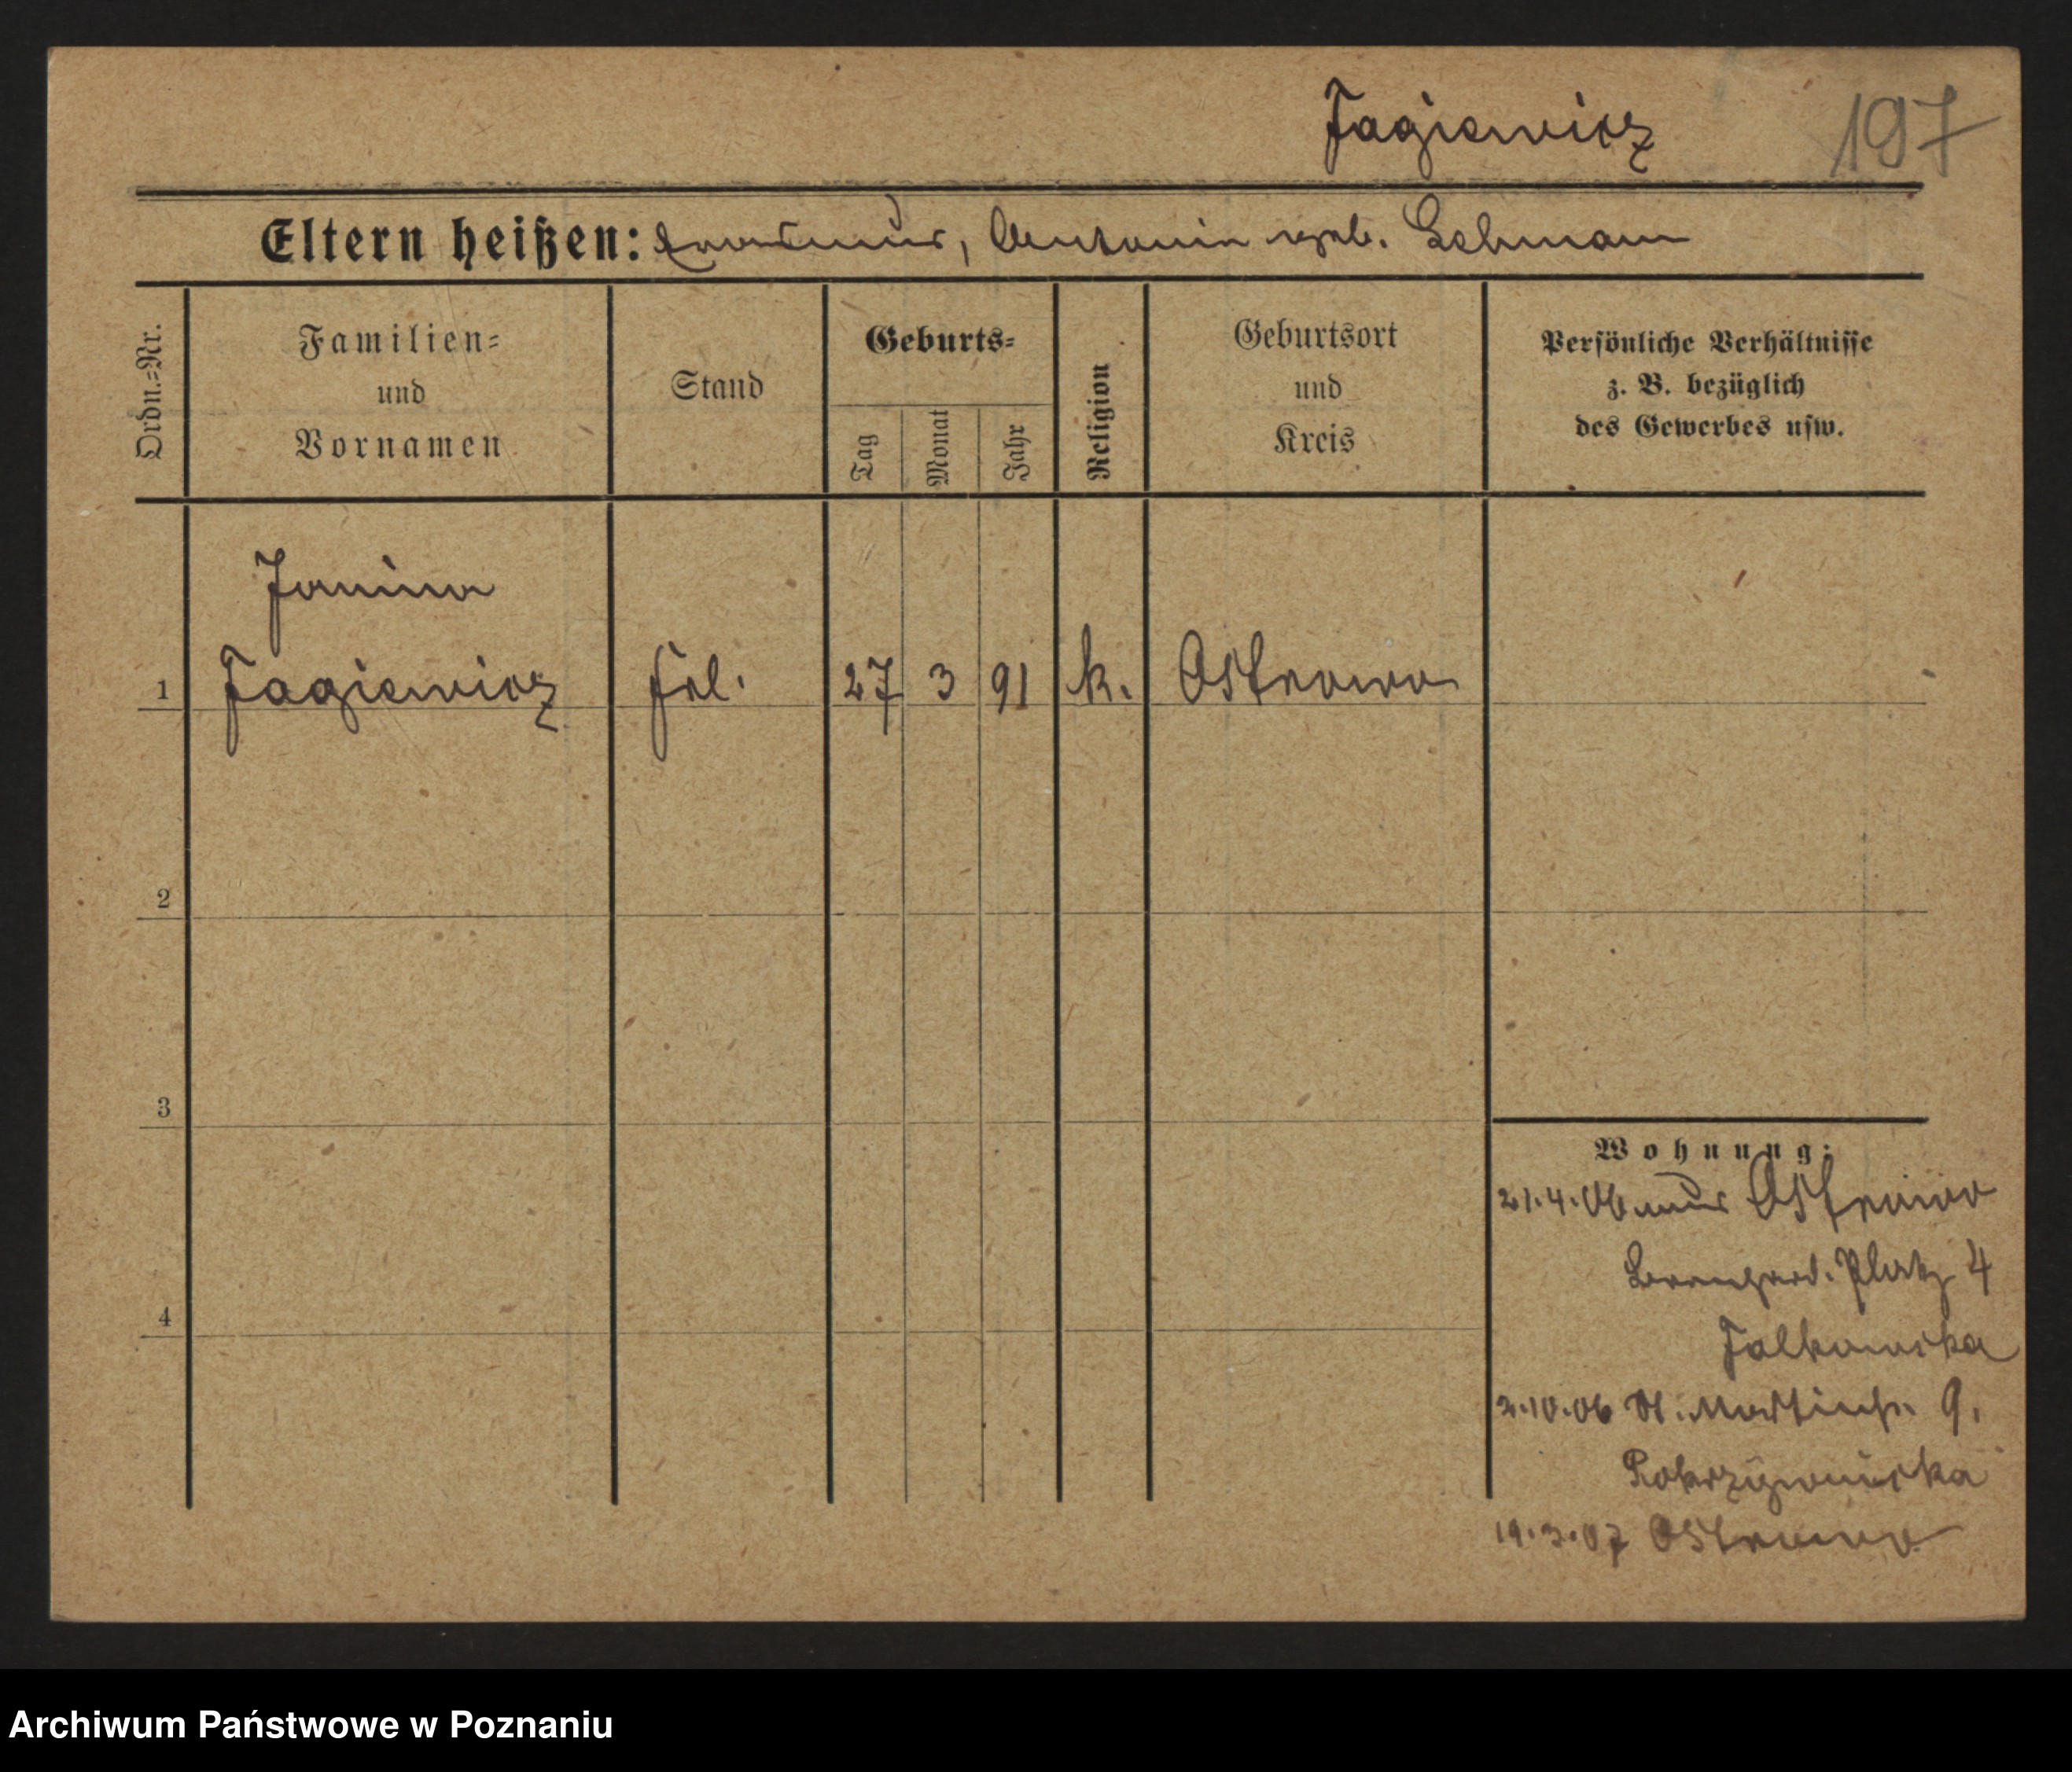 Jagiewicz 197
Eltern heißen: Antonia geb. Lehmann
Ordn.=Nr.
Familien=
und
Vornamen
Stand
Geburts=
Tag
Monat
Jahr
Religion
Geburtsort
und
Kreis
Persönliche Verhältnisse
z. B. bezüglich
des Gewerbes usw.
Janina
1 Jagiewicz Frl. 27 3 91 k. Ostrowo
2
3
4
Wohnung:
21.4.06 aus Ostrowo
Platz 4
Falkowska
2.10.06 St. Martinstr. 9.
Pokrzywnicka
19.3.07 Ostrowo
Archiwum Państwowe w Poznaniu